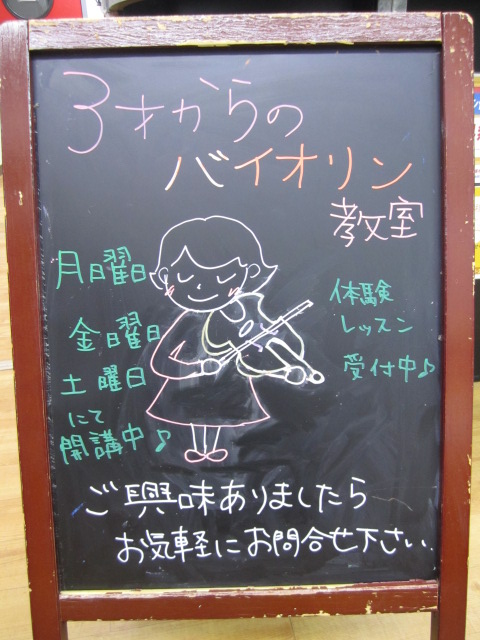 3才からの
バイオリン
教室
月曜日
金曜日
土曜日
にて
開講中♪
体験
レッスン
受付中♪
ご興味ありましたら
お気軽にお問合せ下さい.